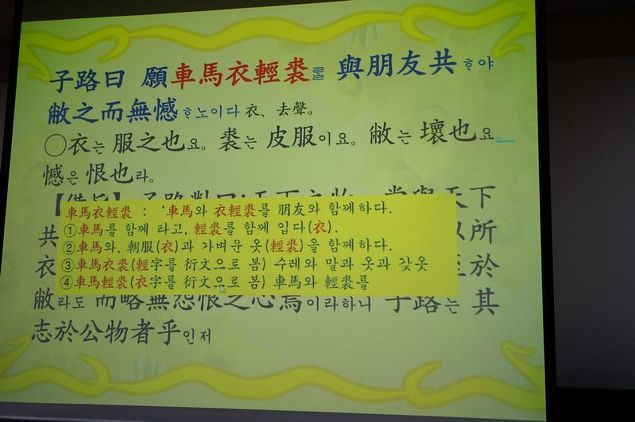 子路曰 願車馬衣輕裘를 與朋友共ᄒᆞ야
敝之而無憾ᄒᆞ노이다 衣、去聲。
○衣는 服之也요。裘는 皮服이요。敝는 壞也요
憾은 恨也라。
【備旨】子路對曰 天下之物 當與天下
車馬衣輕裘 : '車馬와 衣輕裘를 朋友와 함께하다.
共 以所
①車馬를 함께 타고, 輕裘를 함께 입다(衣).
②車馬와, 朝服(衣)과 가벼운 옷(輕裘)을 함께하다.
衣 於
③車馬衣裘(輕字를 衍文으로 봄) 수레와 말과 옷과 갖옷
④車馬輕裘(衣字를 衍文으로 봄) 車馬와 輕裘를
敝라도 而略無怨恨之心焉이라하니 子路는 其
志於公物者乎인저